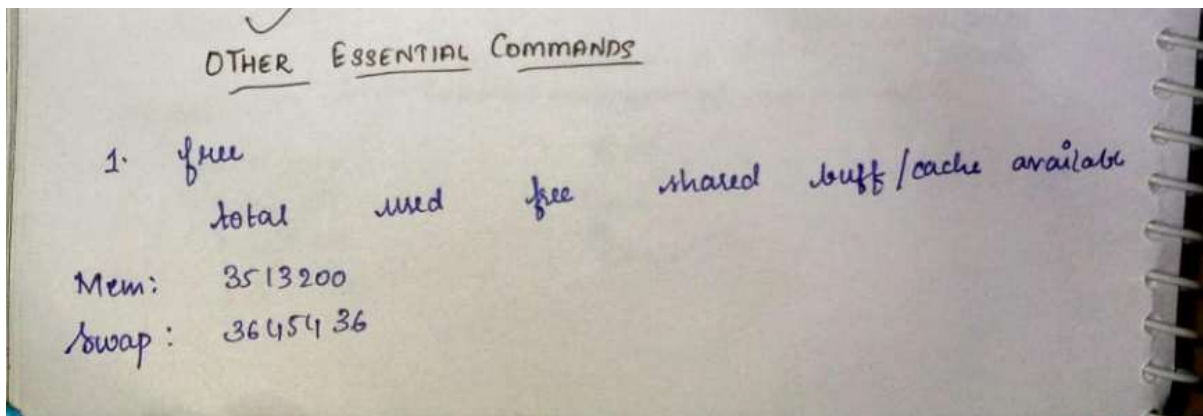 OTHER ESSENTIAL COMMANDS
1. free
total used free shared buff/cache available
Mem: 3513200
Swap: 3645436